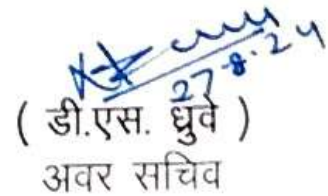 27-8-24
( डी.एस. ध्रुवे )
अवर सचिव